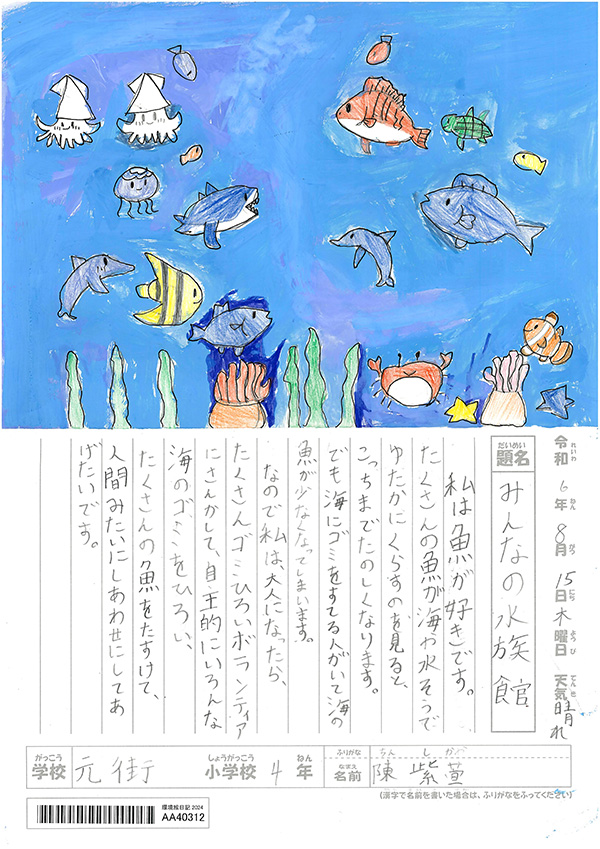 令和6年8月15日木曜日 天気晴れ
れいわ ねん がつ にち ようび てんき
だいめい
題名 みんなの水族館
私は魚が好きです。
たくさんの魚が海や水そうで
ゆたかにくらすのを見ると、
こっちまでたのしくなります。
でも海にゴミをすてる人がいて海の
魚が少なくなってしまいます。
なので私は、大人になったら、
たくさんゴミひろいボランティア
にさんかして、自主的にいろんな
海のゴミをひろい、
たくさんの魚をたすけて、
人間みたいにしあわせにしてあ
げたいです。
がっこう しょうがっこう ねん
学校 元街 小学校 4年
ふりがな ちん し
なまえ
名前 陳 紫萱
(漢字で名前を書いた場合は、ふりがなをふってください)
環境絵日記 2024
AA40312